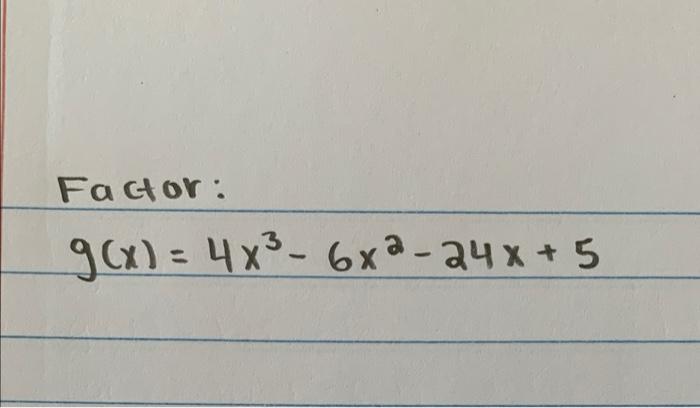 Factor:
g(x) = 4x³ - 6x² - 24x + 5